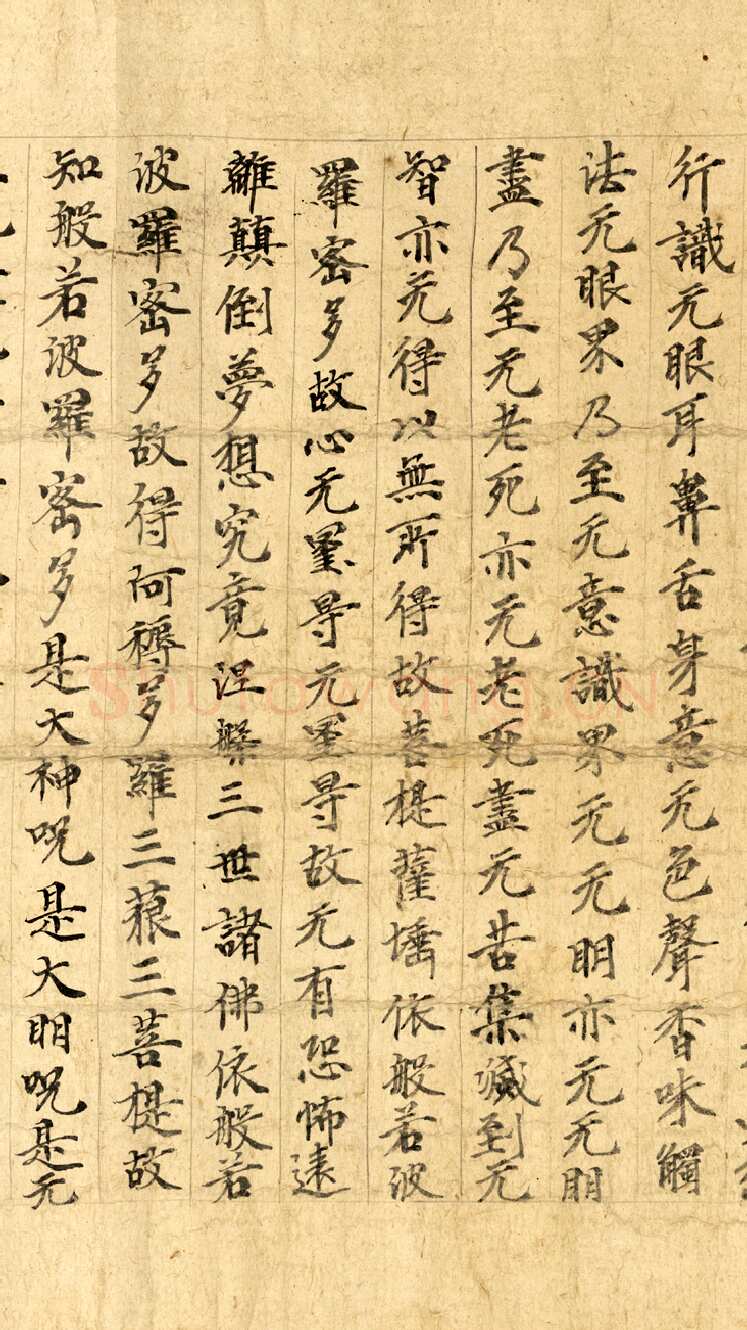 行識无眼耳鼻舌身意无色聲香味觸
法无眼界乃至无意識界无无明亦无无明
盡乃至无老死亦无老死盡无苦集滅到无
智亦无得以無所得故菩提薩埵依般若波
羅密多故心无罣㝵无罣㝵故无有恐怖遠
離顛倒夢想究竟涅槃三世諸佛依般若
波羅密多故得阿耨多羅三藐三菩提故
知般若波羅密多是大神呪是大明呪是无
Shufawang.CN